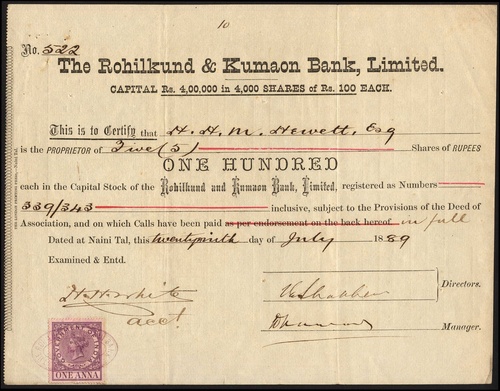 10
No. 522
The Rohilkund & Kumaon Bank, Limited.
CAPITAL Rs. 4,00,000 in 4,000 SHARES of Rs. 100 EACH.
This is to Certify that H. H. M. Hewett, Esq
is the PROPRIETOR of Five (5) Shares of RUPEES
ONE HUNDRED
each in the Capital Stock of the Rohilkund and Kumaon Bank, Limited, registered as Numbers
339/343 inclusive, subject to the Provisions of the Deed of
Association, and on which Calls have been paid as per endorsement on the back hereof in full
Dated at Naini Tal, this twentyninth day of July 1889
Examined & Entd.
Directors.
acct.
Manager.
GOVERNMENT OF INDIA
ONE ANNA